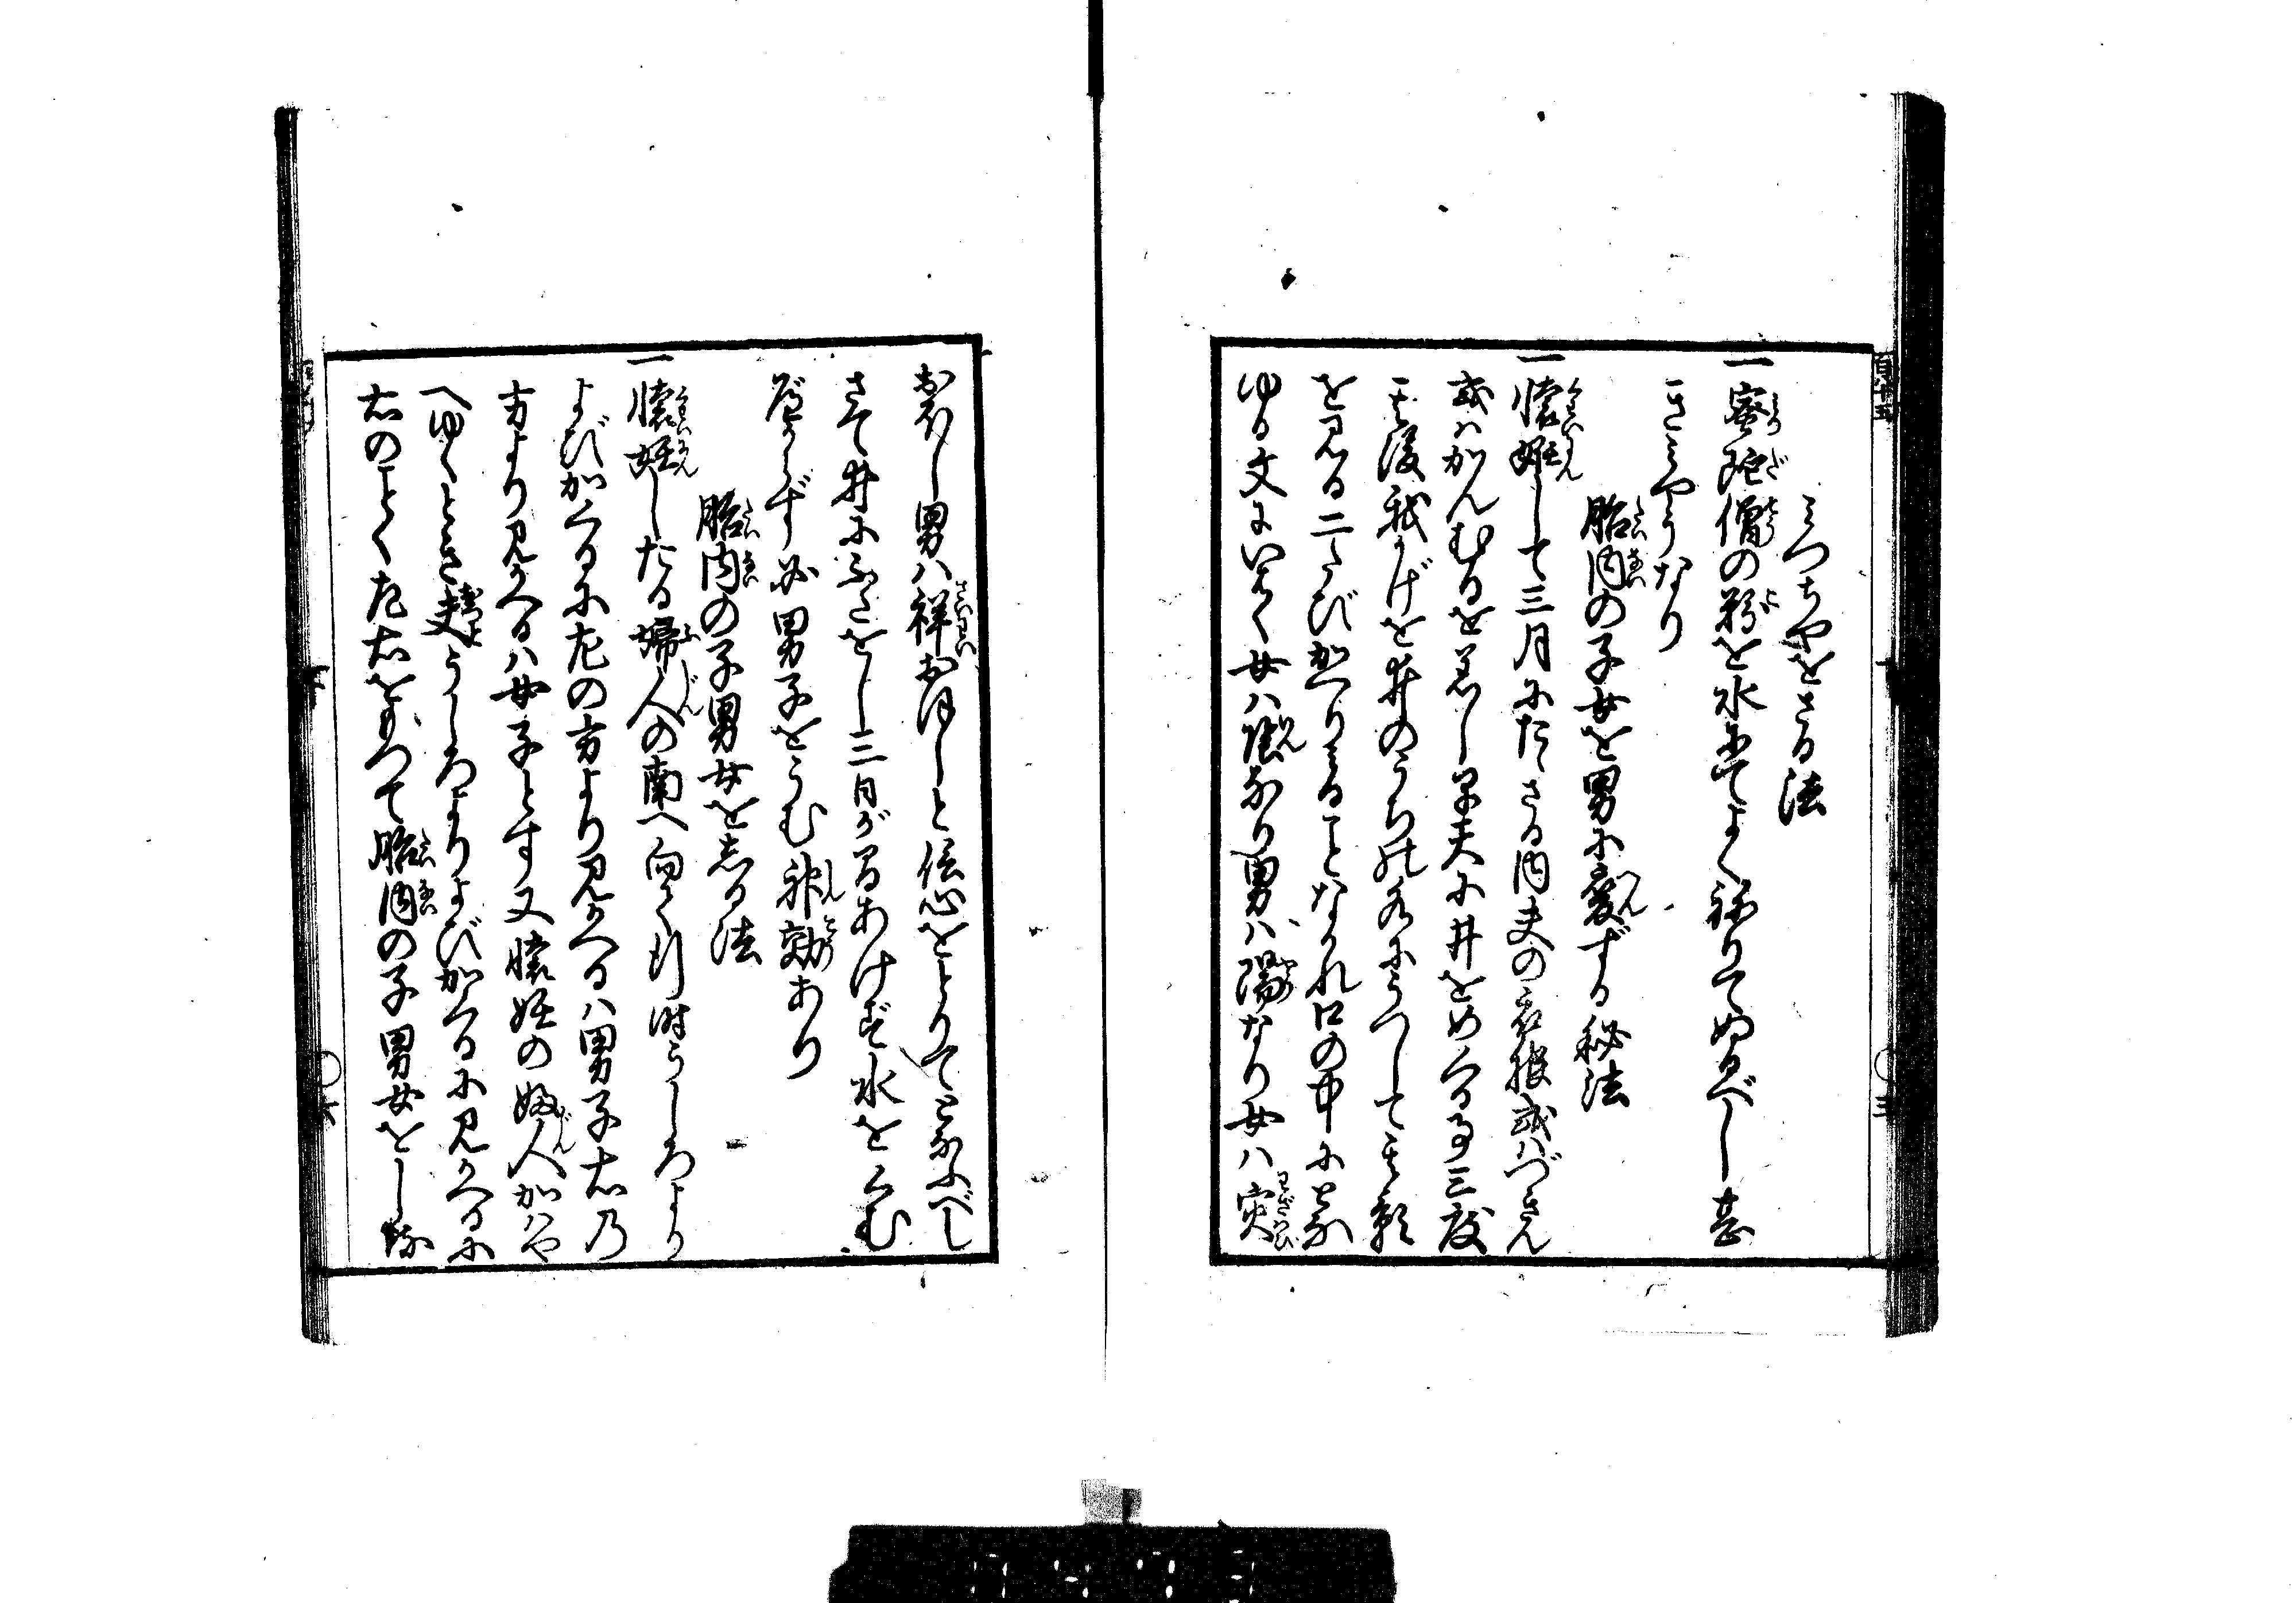 みつちやをさる法
一蜜陀僧の粉を水にてよく祢りてぬるべし甚
きみやうなり
胎内の子女を男に変ずる秘法
一懐妊して三月にたゝさる内夫の衣服或ハづきん
或ハかんむりを着し早天に井をめぐる事三度
其後我かげを井のうちの水にうつして其影
を見る二たびかへりみることなかれ口の中にとな
ゆる文にいはく女ハ陰なり男ハ陽なり女ハ災
おほし男ハ祥おほしと信心をとりてとなふべし
さて井にふたをし三日が間あけず水をくむ
べからず必男子をうむ神効あり
胎内の子男女を志る法
一懐妊したる婦人の南へ向て行時うしろより
よびかくるに左の方より見かへるハ男子右乃
方より見かへるハ女子とす又懐妊の婦人かハや
へゆくとき夫うしろよりよびかくるに見かへるに
右のことく左右をもつて胎内の子男女をしる